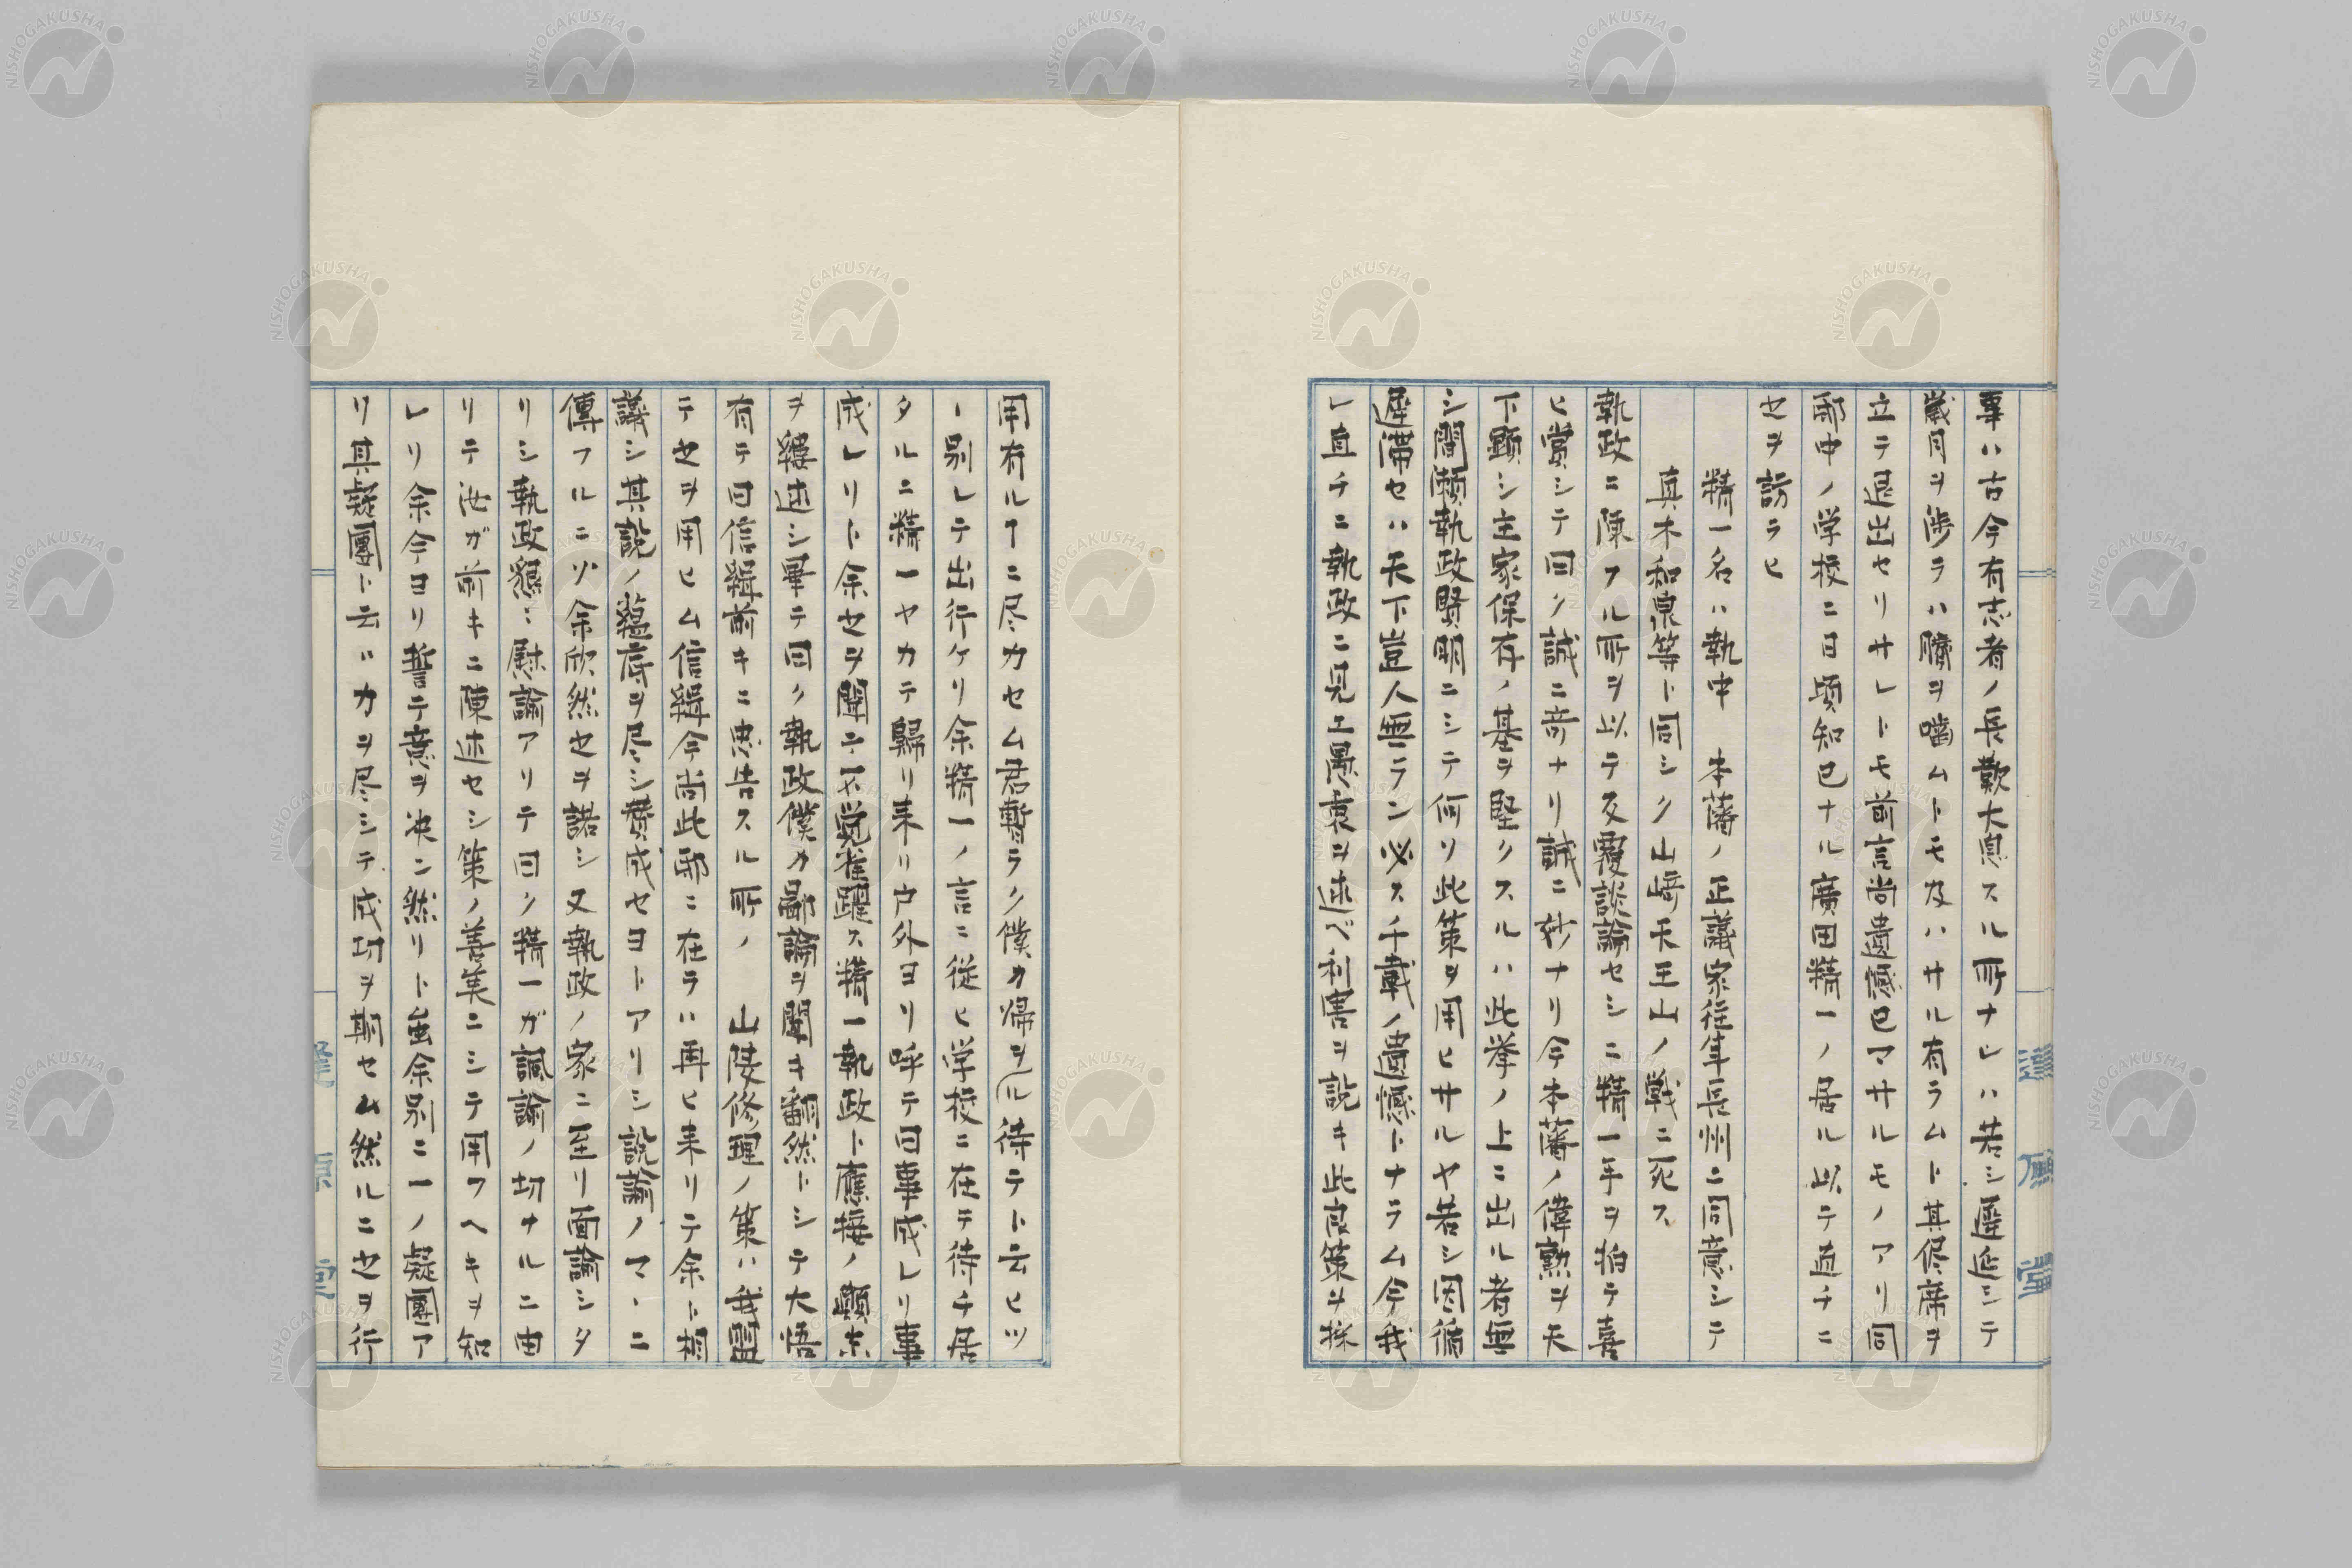 事ハ古今有志者ノ長歎大息スル所ナレハ若シ遷延シテ
歳月ヲ渉ラハ臍ヲ噛ムトモ及ハサル有ラムト其侭席ヲ
立テ退出セリサレトモ前言尚遺憾已マサルモノアリ同
邸中ノ学校ニ日頃知己ナル廣田精一ノ居ル以テ直チニ
之ヲ訪ラヒ
精一名ハ執中 本藩ノ正議家往年長州ニ同意シテ
真木和泉等ト同シク山﨑天王山ノ戦ニ死ス
執政ニ陳フル所ヲ以テ反覆談論セシニ精一手ヲ拍テ喜
ヒ賞シテ曰ク誠ニ奇ナリ誠ニ妙ナリ今本藩ノ偉勲ヲ天
下顕シ主家保存ノ基ヲ堅クスルハ此挙ノ上ニ出ル者無
シ間瀬執政賢明ニシテ何ソ此策ヲ用ヒサルヤ若シ因循
遅滞セハ天下豈人無ラン必ス千載ノ遺憾トナラム今我
レ直チニ執政ニ見エ愚衷ヲ述ベ利害ヲ説キ此良策ヲ採
用有ルヿニ尽力セム君暫ラク僕カ帰ヲル待テト云ヒツ
丶別レテ出行ケリ余精一ノ言ニ従ヒ学校ニ在テ待チ居
タルニ精一ヤカテ歸リ来リ户外ヨリ呼テ曰事成レリ事
成レリト余之ヲ聞ニ不覚雀躍ス精一執政ト應接ノ顛末
ヲ縷述シ畢テ曰ク執政僕カ鄙論ヲ聞キ翻然トシテ大悟
有テ曰信緝前キニ忠告スル所ノ 山陵修理ノ策ハ我盟
テ之ヲ用ヒム信緝今尚此邸ニ在ラハ再ヒ来リテ余ト相
議シ其説ノ蘊底ヲ尽シ賛成セヨトアリシ説諭ノマヽニ
傳フルニソ余欣然之ヲ諾シ又執政ノ家ニ至リ面論シタ
リシ執政懇ニ慰諭アリテ曰ク精一ガ諷諭ノ切ナルニ由
リテ汝ガ前キニ陳述セシ策ノ善美ニシテ用フヘキヲ知
レリ余今ヨリ誓テ意ヲ决ン然リト虽余別ニ一ノ疑團ア
リ其疑團ト云ハカヲ尽シテ成功ヲ期セム然ルニ之ヲ行